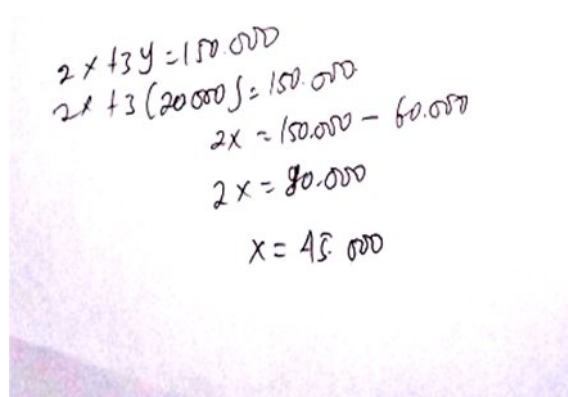 2x + 3y = 150.000
2x + 3(20000) = 150.000
2x = 150.000 - 60.000
2x = 90.000
x = 45.000